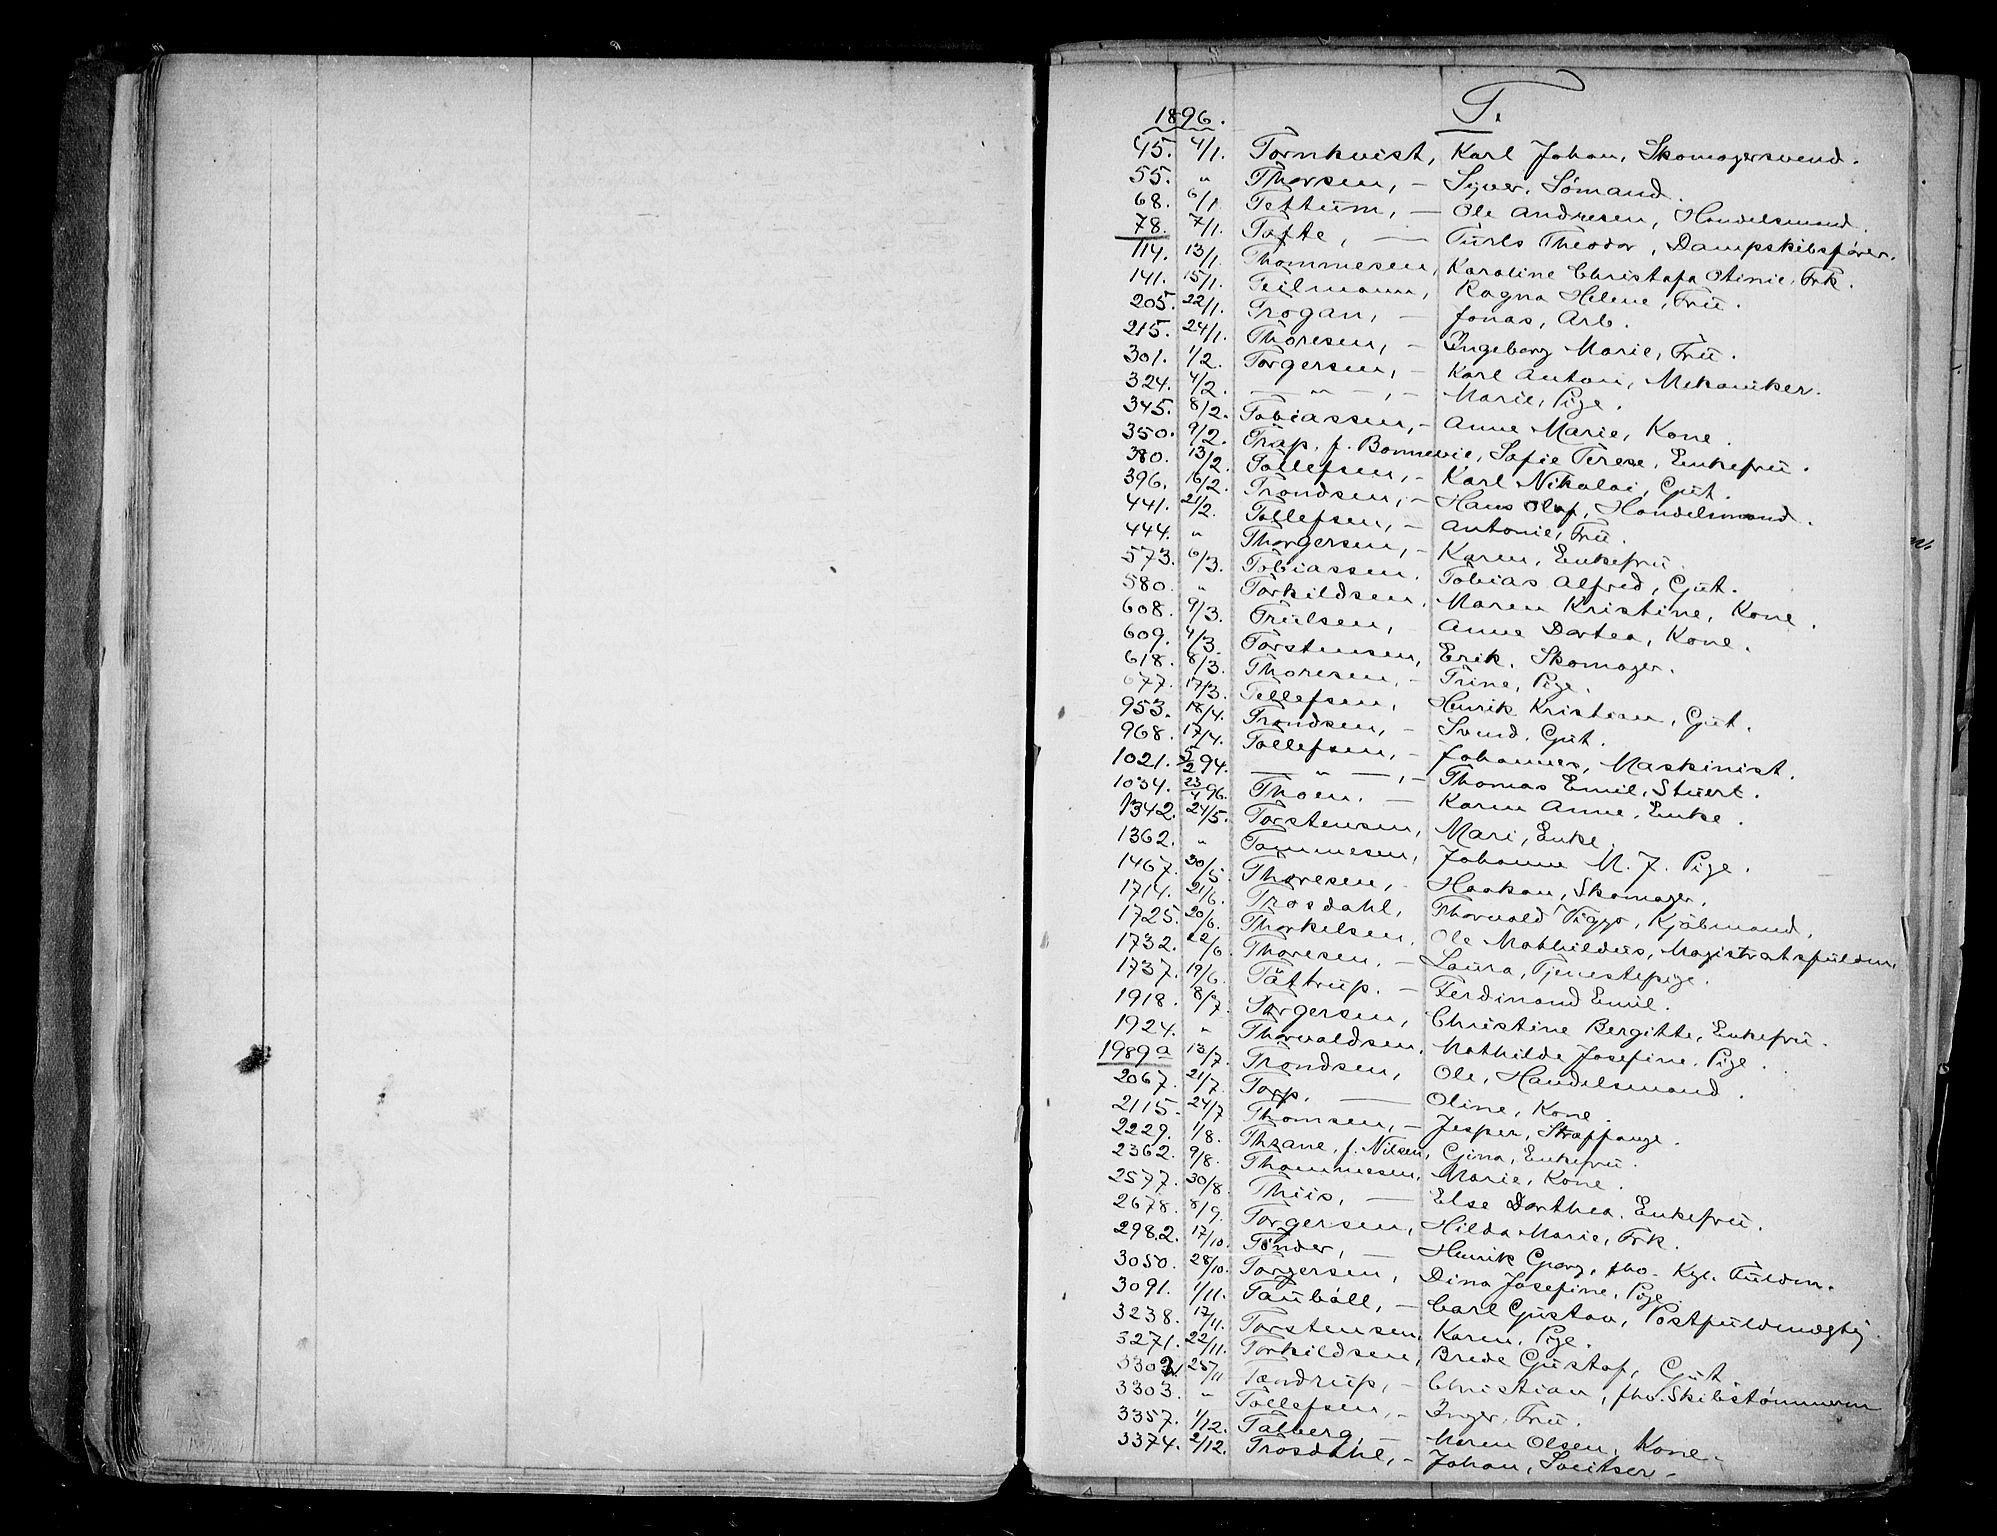 T.
1896.
45. 4/1. Tornkvist, Karl Johan, Skomagersvend.
55. " Thorsen, — Syver, Sömand.
68. 6/1 Tettum, — Ole Andresen, Handelsmand.
78. 7/1. Tofte, — Turls Theodor, Dampskibsfører.
114. 13/1. Thommesen, Karoline Christofa Otinie, Frk.
141. 15/1. Teilmann, Ragna Helene, Frü.
205. 22/1. Trogan, — Jonas, Arb.
215. 24/1. Thoresen, — Ingeborg Marie, Frü.
301. 1/2. Torgersen, — Karl Anton, Mekaniker.
324. 4/2. — " —, — Marie, Pige.
345. 8/2. Tobiassen, — Anne Marie, Kone.
350. 9/2. Trap, f. Bonnevie, Sofie Terese, Enkefrü.
380. 13/2. Tollefsen, — Karl Nikolai, Güt.
396. 16/2. Trondsen, — Hans Olaf, Handelsmand.
441. 21/2. Tollefsen, — Antonie, Frü.
444. " Thorgersen, — Karen, Enkefrü.
573. 6/3. Tobiassen, Tobias Alfred, Güt.
580. " Torkildsen, Maren Kristine, Kone.
608. 9/3. Trülsen, — Anne Dortea, Kone.
609. 4/3. Torstensen, Erik, Skomager.
618. 8/3. Thoresen, — Trine, Pige.
677. 17/3. Tellefsen, Henrik Kristian, Güt.
953. 18/4. Trondsen, — Svend, Güt.
968. 17/4. Tollefsen, — Johannes, Maskinist.
1021. 5/2 94. — " —, — Thomas Emil, Stüert.
1034. 23/4 96. Thoen, — Karen Anne, Enke.
1342. 24/5. Torstensen, Mari, Enke.
1362. " Tommesen, Johanne M. J. Pige.
1467. 30/5. Thoresen, — Haakon, Skomager.
1714. 21/6. Trosdahl, Thorvald Viggo, Kjøbmand.
1725. 20/6. Thorkelsen, Ole Mathildus, Magistratsfüldm.
1732. 22/6 Thoresen, — Laura, Tjenestepige.
1737. 19/6. Tättrup. — Ferdinand Emil.
1918. 8/7. Torgersen, Christine Bergitte, Enkefrü.
1924. " Thorvaldsen, Mathilde Josefine, Pige.
1989a 13/7. Trondsen, Ole, Handelsmand.
2067. 21/7. Torp, — Oline, Kone.
2115. 24/7 Thomsen, — Jesper, Straffange.
2229. 1/8. Thrane, f. Nilsen, Gina, Enkefrü.
2362. 9/8. Thommesen, Marie, Kone.
2577. 30/8. Thiis, — Else Dorthea, Enkefrü.
2678. 8/9. Torgersen, Hilda Marie, Frk.
2982. 17/10. Tönder, — Henrik Georg, fho. Kgl. Füldm.
3050. 28/10. Torgersen, Dina Josefine, Pige.
3091. 1/11. Taubøll, — Carl Güstav, Postfüldmægtig.
3238. 17/11. Torstensen, Karen, Pige.
3271. 22/11. Torkildsen, Brede Güstaf, Güt
3302. 25/11 Tændrup, — Christian, fho. Skibstømmerm
3303. " Tollefsen, — Inger, Frü.
3357. 1/12. Talberg, — Maren Olsen, Kone.
3374. 2/12. Trosdahl, — Johan,